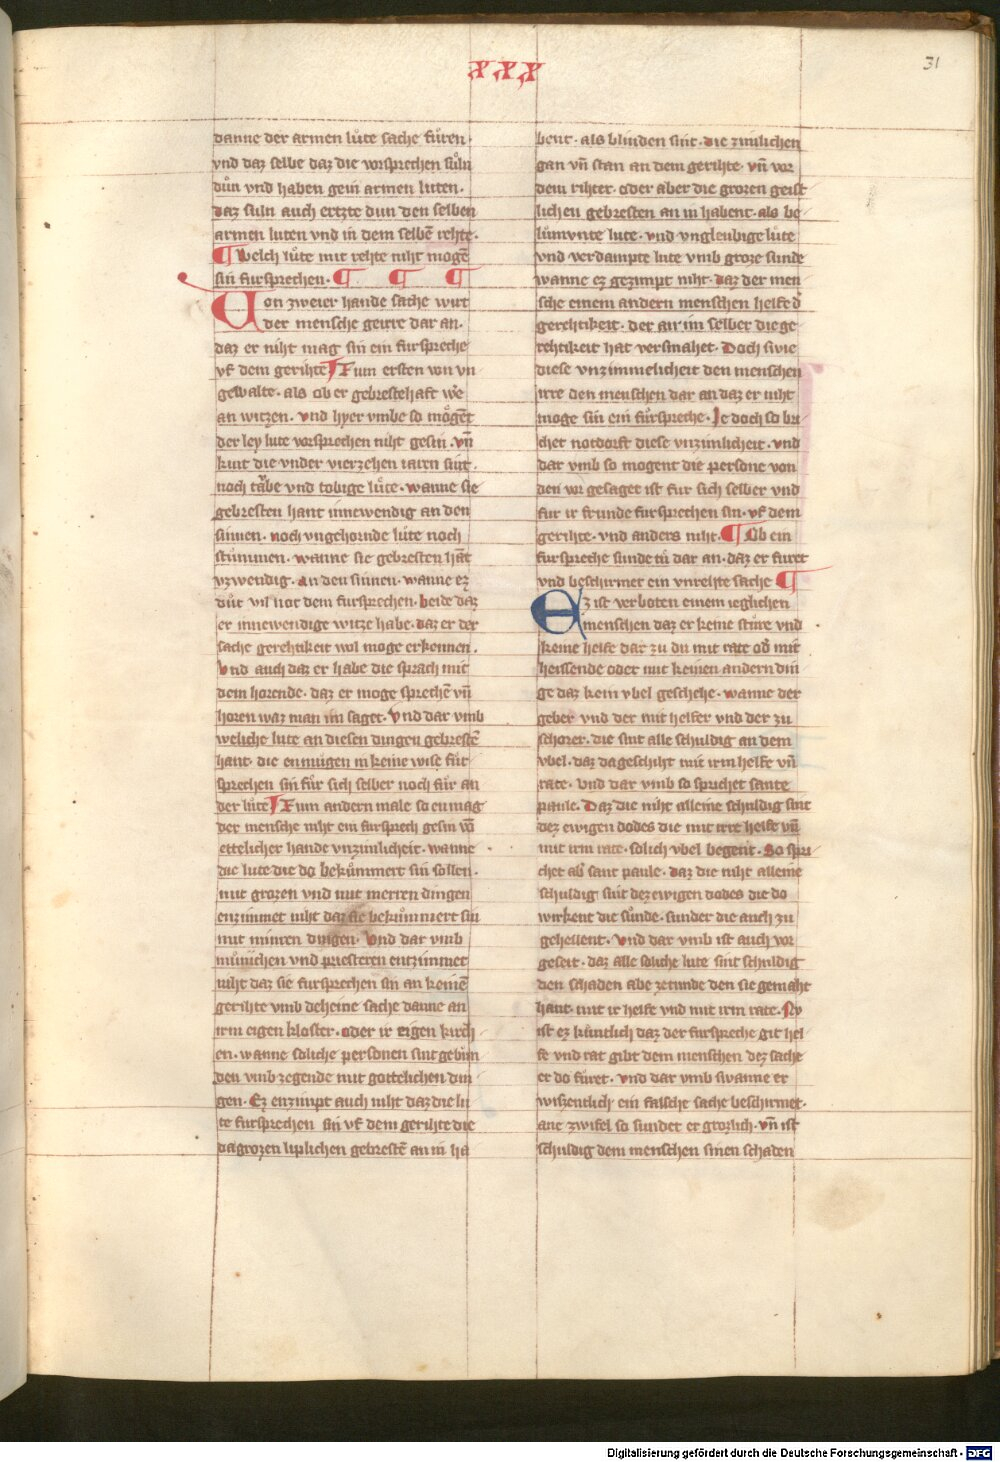 xxx
31
danne der armen lúte sache fúren·
vnd daz selbe daz die vorsprechen súln
dún vnd haben gein armen luten·
daz suln auch ertzte dun den selben
armen luten vnd in dem selbē rehte·
¶ Welch lúte mit rehte niht mogē
sin fursprechen· ¶ ¶ ¶
Von zweier hande sache wirt
der mensche geirre dar an·
daz er niht mag sin ein furspreche
vf dem gerihte ¶ Zum ersten von vn
gewalte· als ob er gebrestehaft we
an witzen· vnd hyer vmbe so mogēt
der ley lute vorsprechen niht gesin· vn̄
kint die vnder vierzehen iaren sint·
noch taͤbe vnd tobige lúte· wanne sie
gebresten hant innewendig an den
sinnen· noch vngehornde lúte noch
stúmmen· wanne sie gebresten hāt
vzwendig· an den sinnen· wanne ez
dút vil not dem fursprechen· beide daz
er innewendige witze habe· daz er der
sache gerehtikeit wol moge erkennen·
Vnd auch daz er habe die sprach mit
dem horende· daz er moge sprechē vn̄
horen waz man im saget· Vnd dar vmb
weliche lute an diesen dingen gebrestē
hant· die enmúgen in keine wise fúr
sprechen sin fúr sich selber noch fúr an
der lúte ¶ Zum andern male so enmag
der mensche niht ein fursprech gesin vō
ettelicher hande vnzimlicheit· wanne
die lute die do bekúmmert sin sollen·
mit grozen vnd mit merren dingen
enzimmet niht daz sie bekúmmert sin
mit minren dingen· Vnd dar vmb
múnichen vnd priesteren entzimmet
niht daz sie fursprechen sin an keinē
gerihte vmb deheine sache danne an
irm eigen kloster· oder ir eigen kirch
en· wanne soliche personen sint gebún
den vmb zegende mit gottelichen din
gen· Ez enzimpt auch niht daz die lu
te fursprechen sin vf dem gerihte die
da grozen liplichen gebrestē an in ha
bent· als blinden sint· die zimlichen
gan vn̄ stan an dem gerihte· vn̄ vor
dem rihter· oder aber die grozen geist
lichen gebresten an in habent· als be
lúmunte lute· vnd vngleubige lúte
vnd verdampte lute vmb groze sunde
wanne ez gezimpt niht· daz der men
sche einem andern menschen helfe d
gerehtikeit· der an im selber die ge
rehtikeit hat versmahet· Doch swie
diese vnzimmelicheit den menschen
irre den menschen dar an daz er niht
moge sin ein fúrspreche· Je doch so bri
chet notdorft diese vnzimlicheit· vnd
dar vmb so mogent die persone von
den vor gesaget ist fur sich selber vnd
fur ir frunde fursprechen sin· vf dem
gerihte· vnd anders niht· ¶ Ob ein
furspreche sunde tú dar an· daz er furet
vnd beschirmet ein vnrehte sache ¶
Ez ist verboten einem ieglichen
menschen daz er keine stúre vnd
keine helfe dar zu du mit rate od mit
heissende oder mit keinen andern din
ge daz kein vbel geschehe· wanne der
geber vnd der mit helfer vnd der zu
schorer· die sint alle schuldig an dem
vbel· daz da geschiht mit irm helfe vn̄
rate· vnd dar vmb so sprichet sante
paule· Daz die niht alleine schuldig sint
dez ewigen dodes die mit irre helfe vn̄
mit irm rate· solich vbel begent· So spri
chet ab sant paule· daz die niht alleine
schuldig sint dez ewigen dodes die do
wirkent die súnde· sunder die auch zu
gehellent· Vnd dar vmb ist auch vor
geseit· daz alle soliche lute sint schuldig
den schaden abe zetunde den sie gemaht
hant· mit ir helfe vnd mit irm rate· Nv
ist ez kúntlich daz der furspreche git hel
fe vnd rat gibt dem menschen dez sache
er do fúret· vnd dar vmb swanne er
wiszentlich ein falsche sache beschirmet·
ane zwifel so sundet er grozlich· vn̄ ist
schuldig dem menschen sinen schaden
Digitalisierung gefördert durch die Deutsche Forschungsgemeinschaft · DFG